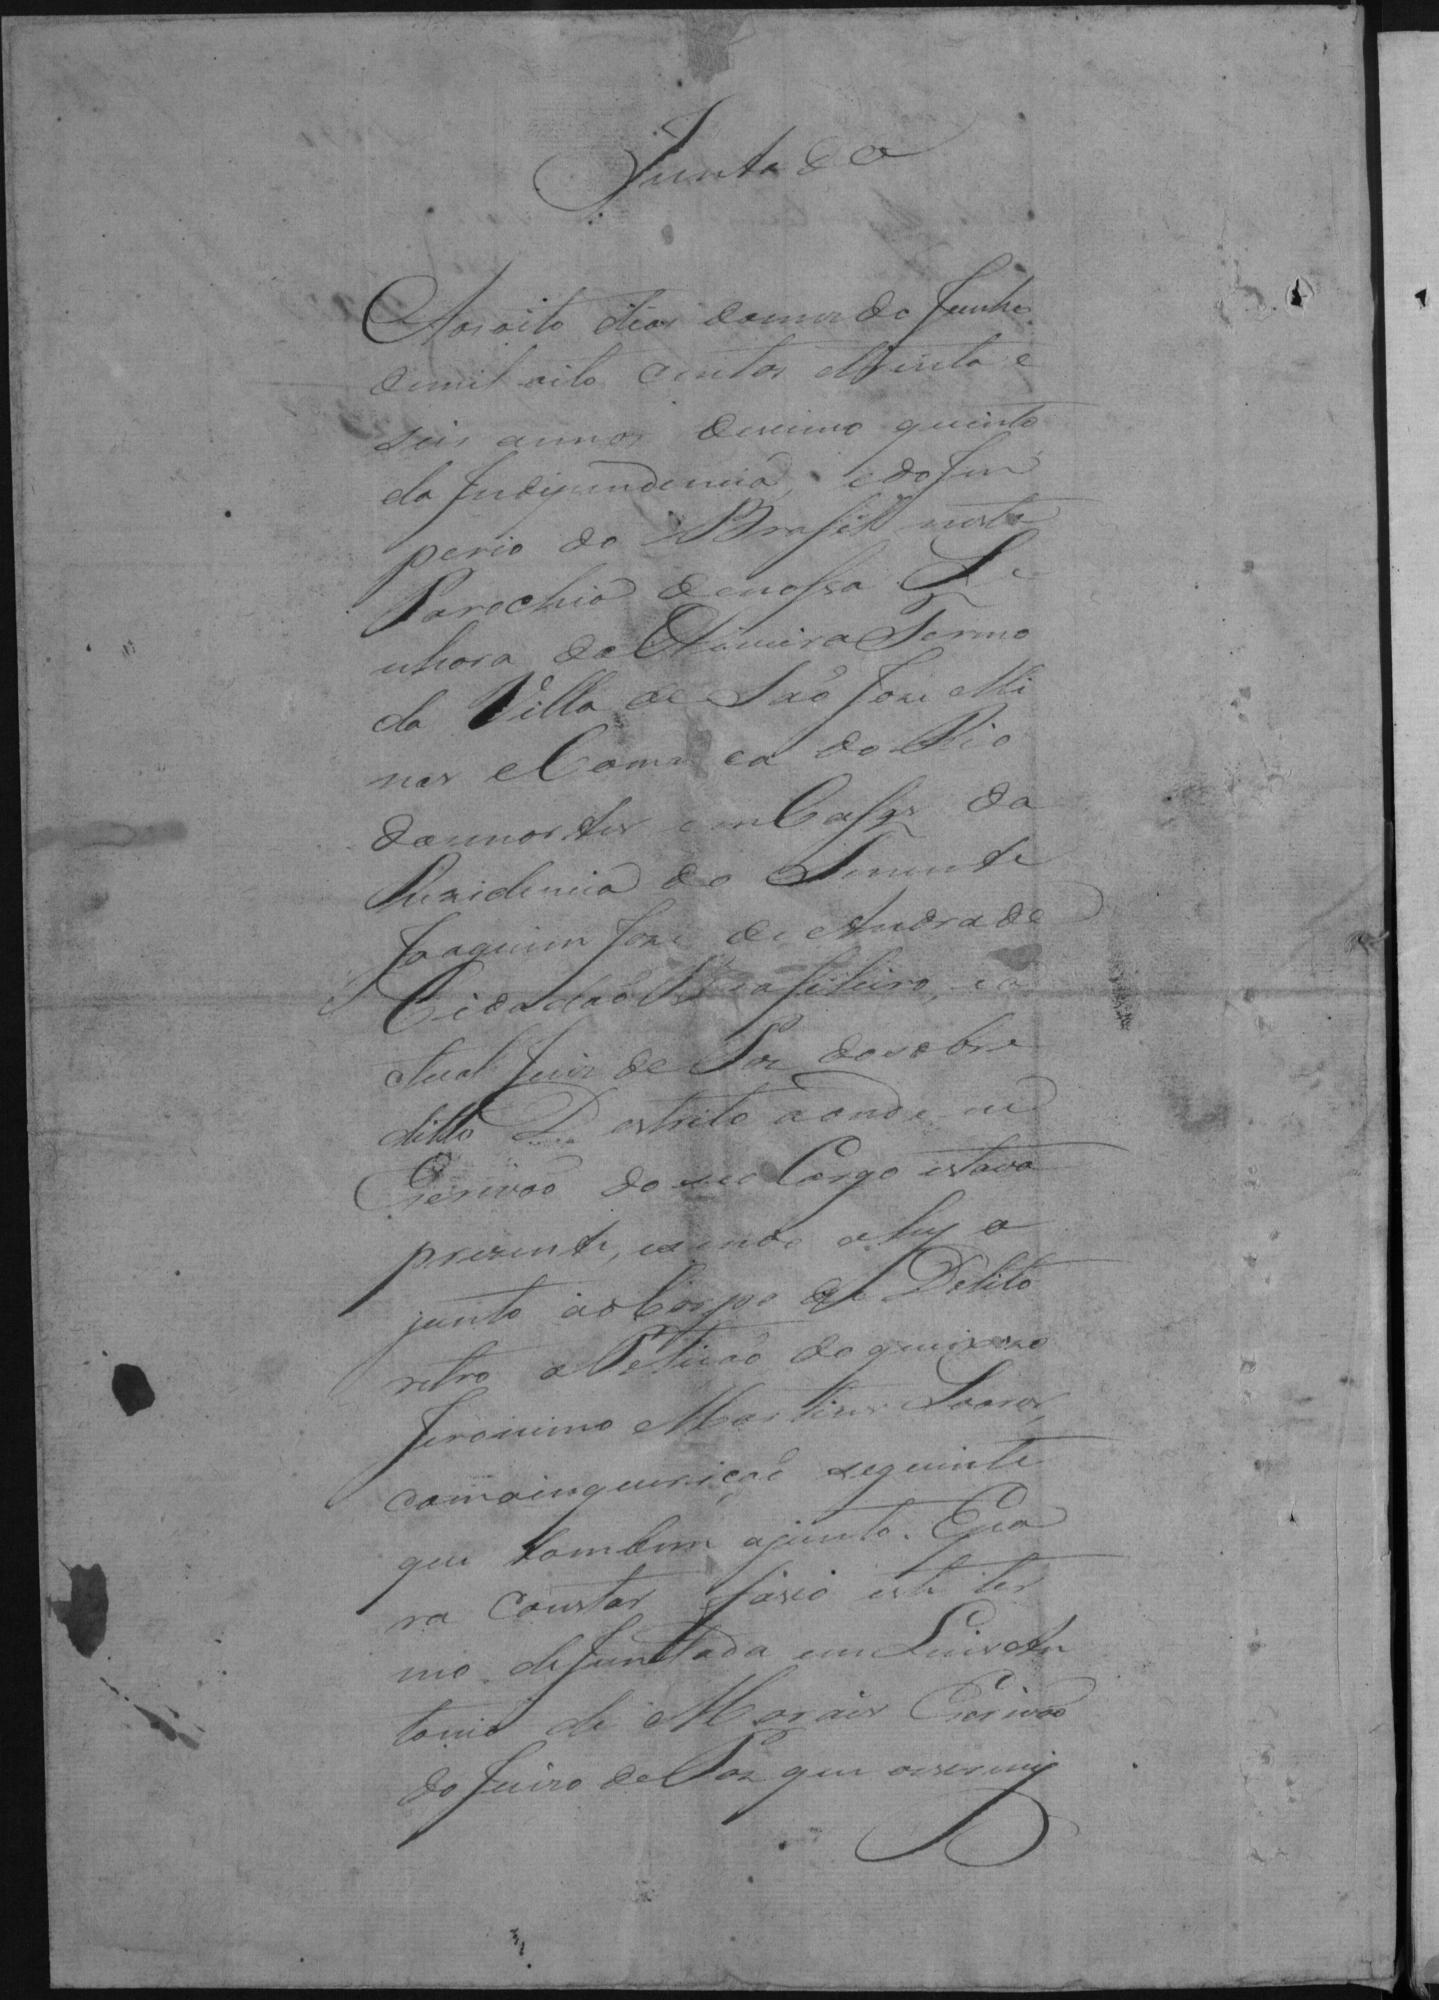 Juntada
Aos oito dias do mes de Junho
de mil oito centos e trinta e
seis annos decimo quinto
da Independencia, e do Im
perio do Brasil nesta
Parochia de nossa Se
nhora da Oliveira Termo
da Villa de São José Mi
nas e Comarca do Rio
das mortes em Casas da
Rezidencia do Tenente
Joaquim Joze de Andrade
Cidadão Brasileiro, e a
ctual Juiz de Paz do sobre
ditto Destrito aonde eu
Escrivão do seu Cargo estava
prezente, e sendo ahy a
junto ao Corpo de Delito
retro a Petição do queixozo
Jeronimo Martins Soares,
com a inquirição seguinte
que tambem ajunto. E pa
ra constar fasso este ter
mo de Juntada eu Luis An
tonio de Morais Escrivão
do Juizo de Paz que o escrevy